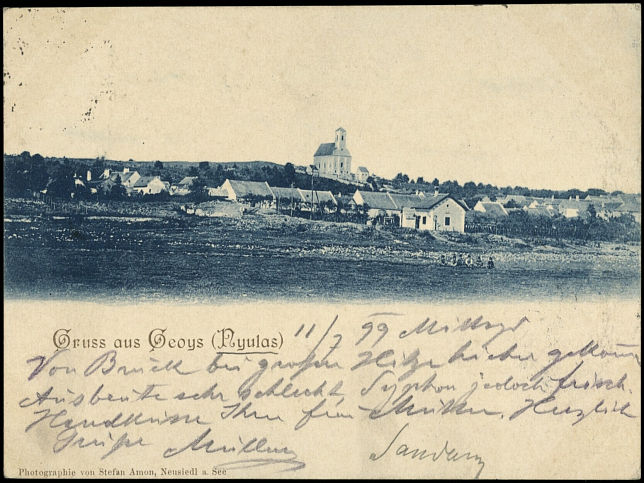 Gruss aus Geoys (Nyulas) 11/7 99 Mittags
Von Bruck bei großer Hitze hieher gekom̅
Ausbeute sehr schlecht, Syphon jedoch frisch.
Handküsse Ihrer Frau Mutter. Herzlich
Grüße Müllner
Photographie von Stefan Amon, Neusiedl a. See